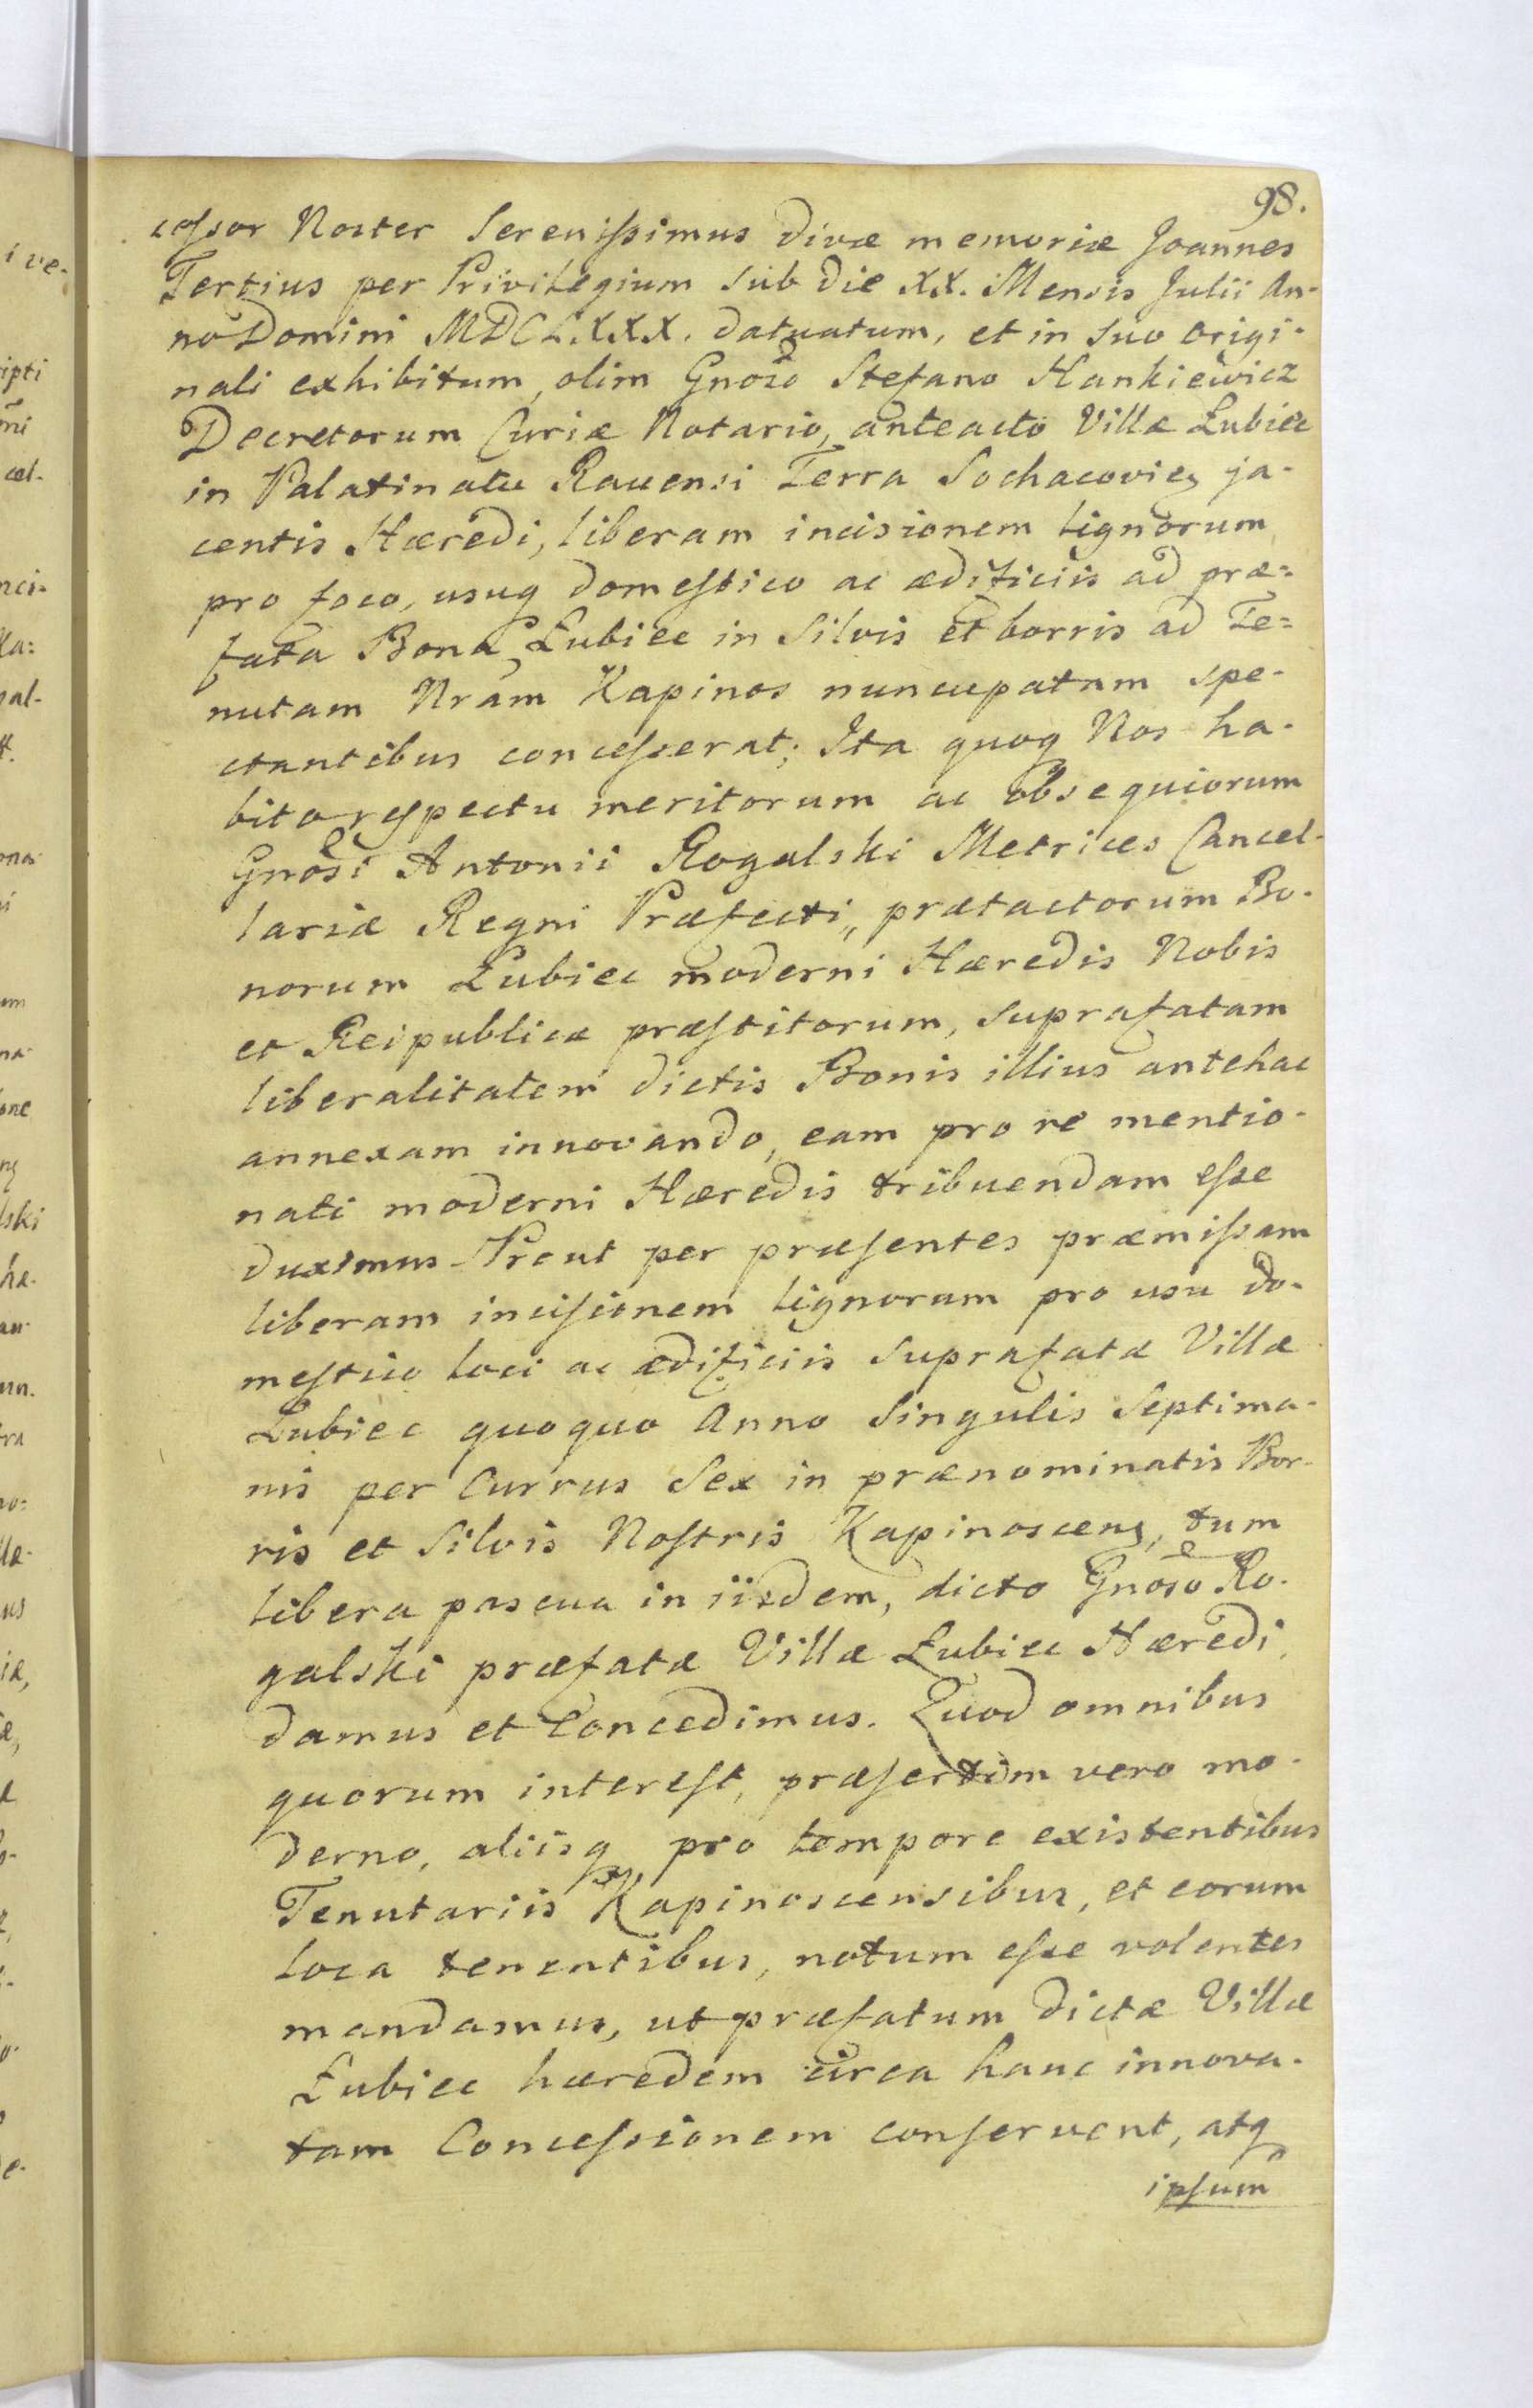 98.
cessor Noster Serenissimus Divæ memoriæ Joannes
Tertius per Privilegium sub die XX. Mensis Julii An-
no Domini MDCLXXX. datuatum, et in suo origi-
nali exhibitum, olim Gnoso Stefano Hankiewicz
Decretorum Curiæ Notario, anteacto Villæ Łubiec
in Palatinatu Ravensi Terra Sochacovien ja-
centis Hæredi, liberam incisionem lignorum
pro foco, usuq domestico ac ædificiis ad præ-
fata Bona Łubiec in Silvis et borris ad Te-
nutam Nram Kapinos nuncupatam spe-
ctantibus concesserat; Ita quoq Nos ha-
bito respectu meritorum ac obsequiorum
Gnosi Antonii Rogalski Metrices Cancel-
lariæ Regni Præfecti, prætactorum Bo-
norum Łubiec moderni Hæredis Nobis
et Reipublicæ præstitorum, suprafatam
liberalitatem dictis Bonis illius antehac
annexam innovando, eam pro re mentio-
nati moderni Hæredis tribuendam esse
duximus Prout per præsentes præmissam
liberam incisionem lignorum pro usu do-
mestico loci ac ædificiis suprafatæ Villæ
Łubiec quoquo Anno Singulis Septima-
nis per Currus Sex in prænominatis Bor-
ris et Silvis Nostris Kapinoscen, tum
libera pascua in iisdem, dicto Gnoso Ro-
galski præfatæ Villæ Łubiec Hæredi,
damus et Concedimus. Quod omnibus
quorum interest, præsertim vero mo-
derno, aliisq pro tempore existentibus
Tenutariis Kapinoscensibus, et eorum
loca tenentibus, notum esse volentes
mandamus, ut præfatum dictæ Villæ
Łubiec hæredem circa hanc innova-
tam Concessionem conservent, atq
ipsum